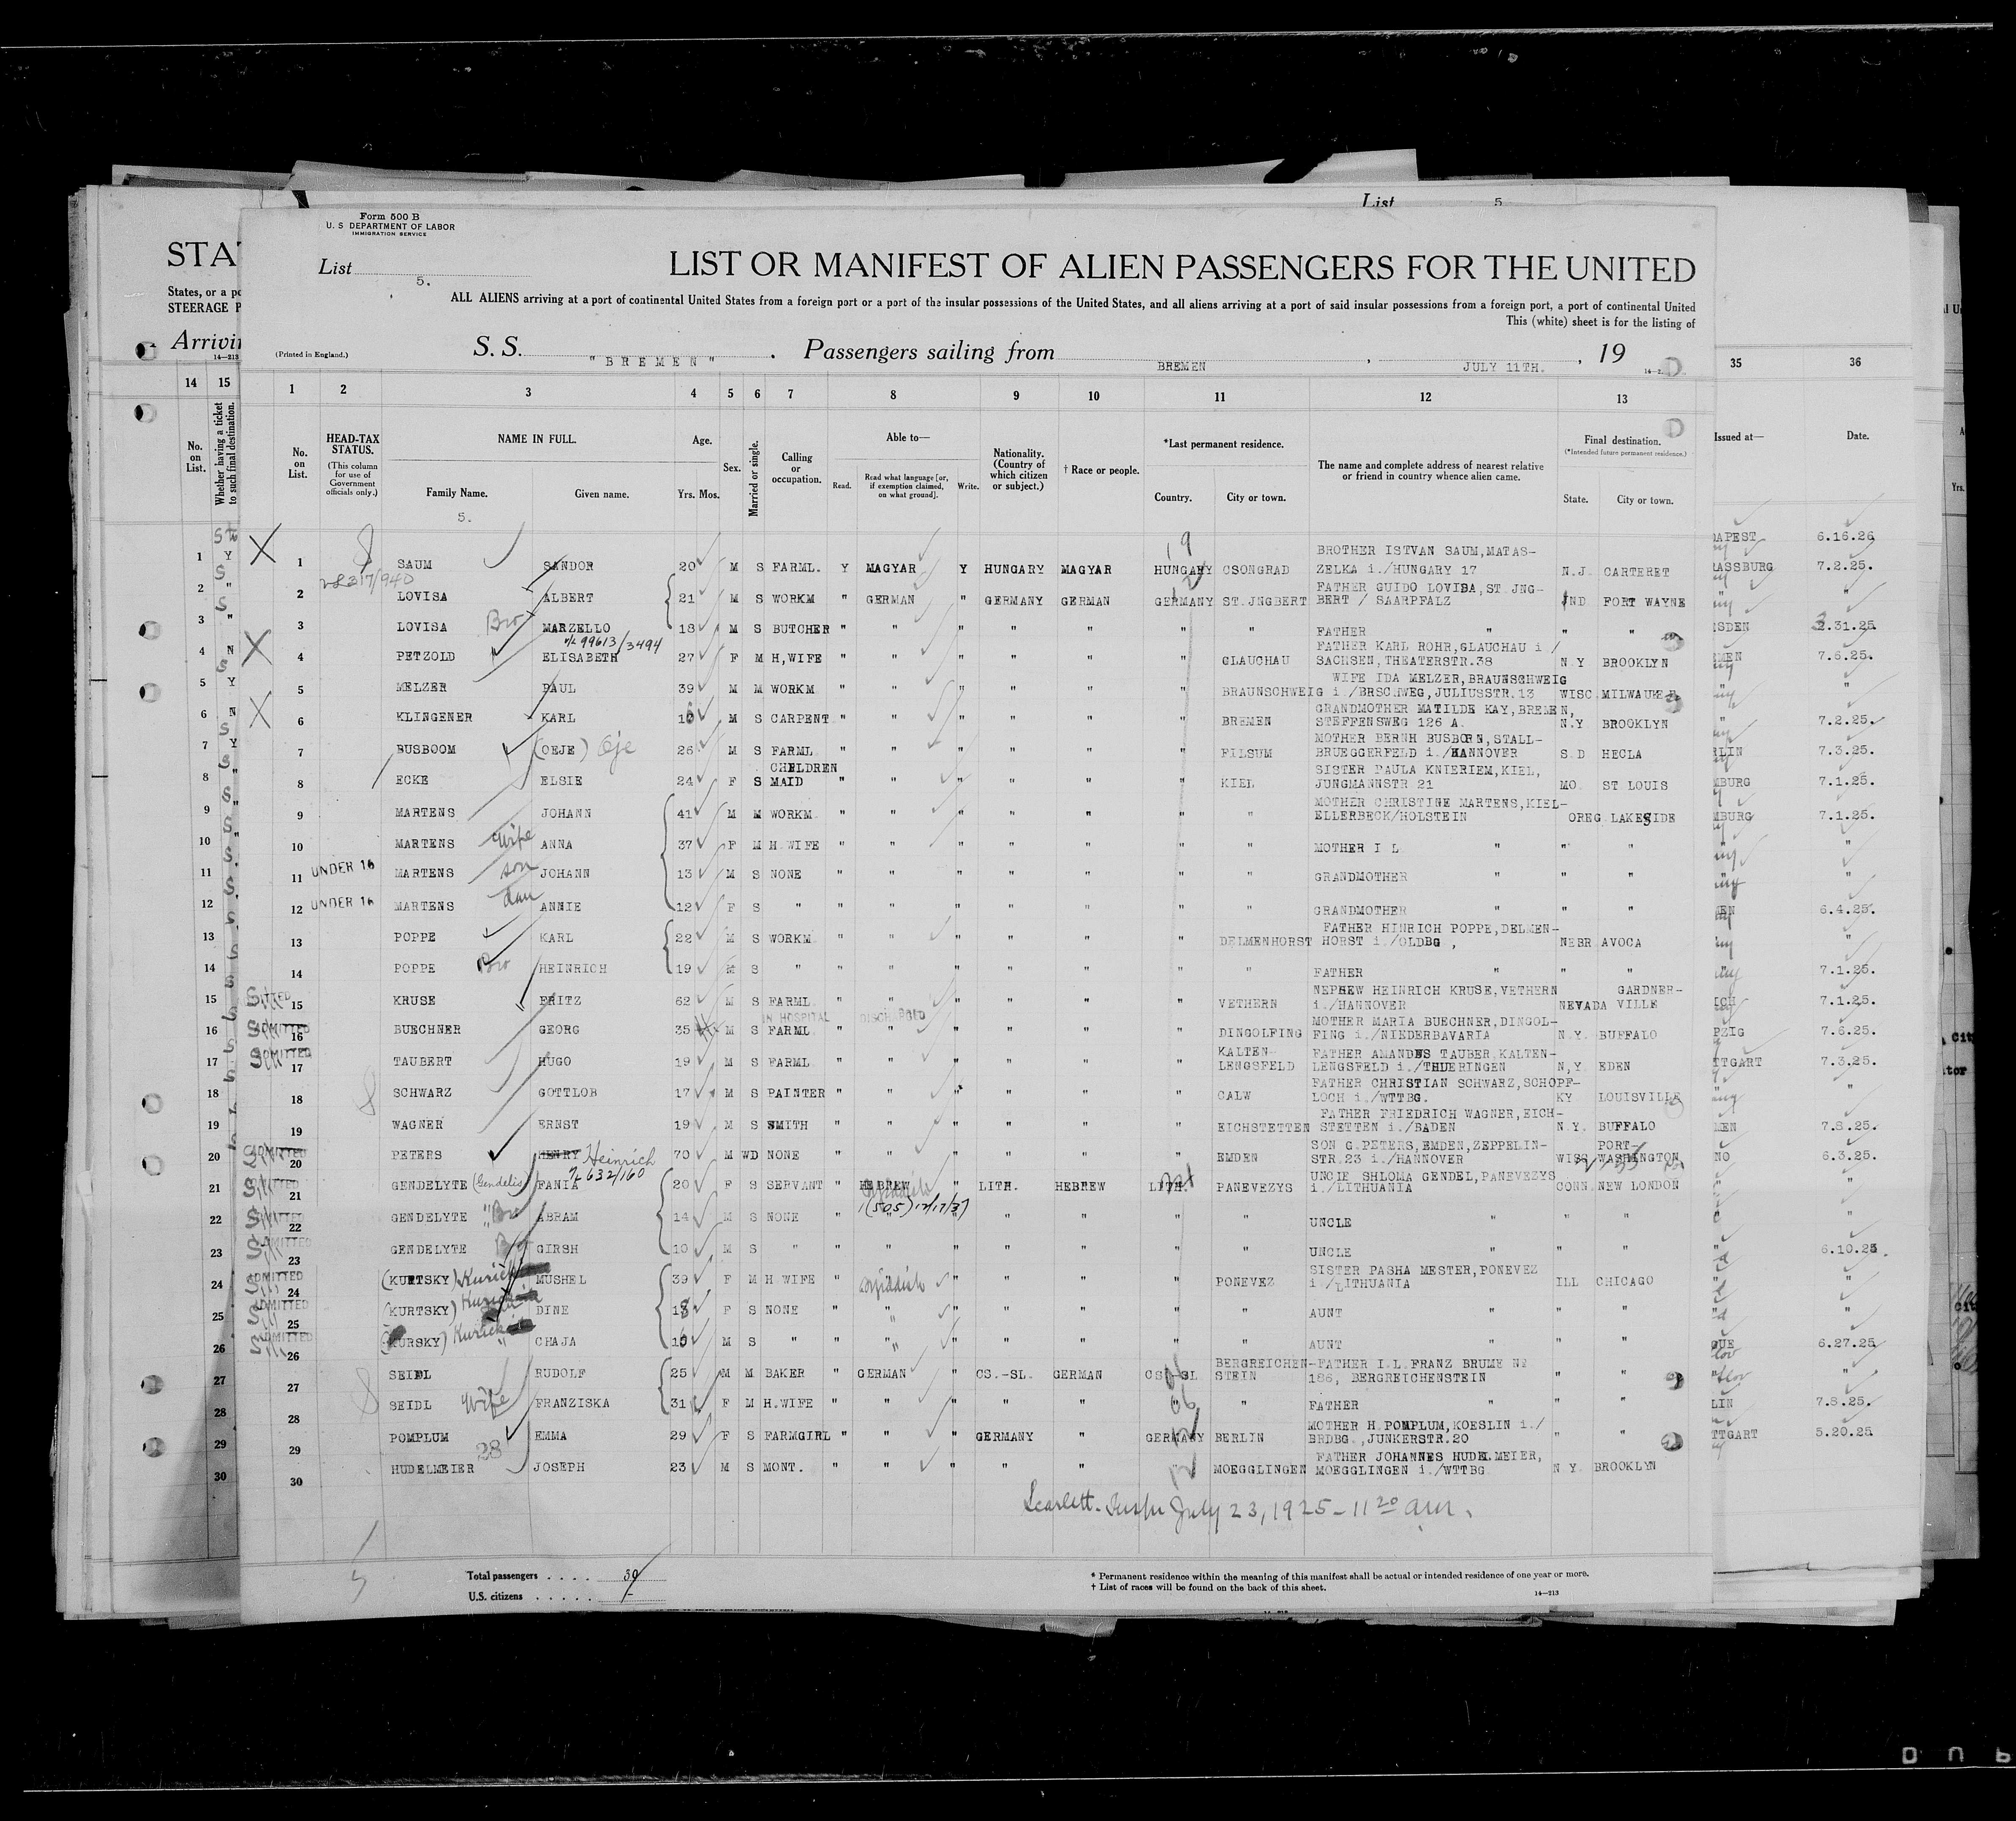 List 5
Form 500 B
U. S DEPARTMENT OF LABOR
IMMIGRATION SERVICE
List 5.
LIST OR MANIFEST OF ALIEN PASSENGERS FOR THE UNITED
ALL ALIENS arriving at a port of continental United States from a foreign port or a port of the insular possessions of the United States, and all aliens arriving at a port of said insular possessions from a foreign port, a port of continental United
This (white) sheet is for the listing of
STA
States, or a po
STEERAGE P
Arrivi
14—213
(Printed in England.)
S. S. "BREMEN" . Passengers sailing from BREMEN , JULY 11TH. , 19
14 15 1 2 3 4 5 6 7 8 9 10 11 12 13 35 36
No. on List.
Whether having a ticket to such final destination.
No. on List.
HEAD-TAX STATUS.
(This column for use of Government officials only.)
NAME IN FULL.
Family Name. Given name.
5.
Age.
Yrs. Mos.
Sex.
Married or single.
Calling or occupation.
Able to—
Read. Read what language [or, if exemption claimed, on what ground]. Write.
Nationality. (Country of which citizen or subject.)
† Race or people.
*Last permanent residence.
Country. City or town.
The name and complete address of nearest relative or friend in country whence alien came.
Final destination.
(*Intended future permanent residence.)
State. City or town.
Issued at— Date.
BROTHER ISTVAN SAUM,MATAS-
1 SAUM SANDOR 20 M S FARML. Y MAGYAR Y HUNGARY MAGYAR HUNGARY CSONGRAD ZELKA i./HUNGARY 17 N.J. CARTERET 6.16.26
FATHER GUIDO LOVISA,ST.JNG-
2 LOVISA ALBERT 21 M S WORKM " GERMAN " GERMANY GERMAN GERMANY ST.JNGBERT BERT / SAARPFALZ IND FORT WAYNE 7.2.25.
3 LOVISA Bro MARZELLO 18 M S BUTCHER " " " " " " " FATHER " " " "
99613/3494
FATHER KARL ROHR,GLAUCHAU i./
4 PETZOLD ELISABETH 27 F M H,WIFE " " " " " " GLAUCHAU SACHSEN,THEATERSTR.38 N.Y BROOKLYN 2.31.25.
WIFE IDA MELZER,BRAUNSCHWEIG
5 MELZER PAUL 39 M M WORKM " " " " " " BRAUNSCHWEIG i./BRSCHWEG,JULIUSSTR.13 WISC. MILWAUKEE 7.6.25.
GRANDMOTHER MATILDE KAY,BREMEN,
6 KLINGENER KARL M S CARPENT " " " " " " BREMEN STEFFENSWEG 126 A. N.Y BROOKLYN "
MOTHER BERNH BUSBORN,STALL-
7 BUSBOOM (OEJE) Oje 26 M S FARML " " " " " " FILSUM BRUEGGERFELD i./HANNOVER S.D HECLA 7.2.25.
CHELDREN SISTER PAULA KNIERIEM,KIEL,
8 ECKE ELSIE 24 F S MAID " " " " " " KIEL JUNGMANNSTR 21 MO. ST LOUIS 7.3.25.
MOTHER CHRISTINE MARTENS,KIEL-
9 MARTENS JOHANN 41 M M WORKM " " " " " " " ELLERBECK/HOLSTEIN OREG LAKESIDE 7.1.25.
10 MARTENS Wife ANNA 37 F M H.WIFE " " " " " " " MOTHER I L " " " 7.1.25.
11 UNDER 16 MARTENS son JOHANN 13 M S NONE " " " " " " " GRANDMOTHER " " " "
12 UNDER 16 MARTENS dau ANNIE 12 F S " " " " " " " " GRANDMOTHER " " " "
FATHER HINRICH POPPE,DELMEN-
13 POPPE KARL 22 M S WORKM " " " " " " DELMENHORST HORST i./OLDBG , NEBR AVOCA 6.4.25.
14 POPPE Bro HEINRICH 19 M S " " " " " " " " FATHER " " " "
NEPHEW HEINRICH KRUSE,VETHERN GARDNER-
15 KRUSE FRITZ 62 M S FARML " " " " " " VETHERN i./HANNOVER NEVADA VILLE 7.1.25.
IN HOSPITAL DISCHARGED
MOTHER MARIA BUECHNER,DINGOL-
ADMITTED 16 BUECHNER GEORG 35 M S FARML " " " " " " DINGOLFING FING i./NIEDERBAVARIA N.Y. BUFFALO 7.1.25.
KALTEN- FATHER AMANDUS TAUBER KALTEN-
ADMITTED 17 TAUBERT HUGO 19 M S FARML " " " " " " LENGSFELD LENGSFELD i./THUERINGEN N,Y. EDEN 7.6.25.
FATHER CHRISTIAN SCHWARZ,SCHOPF-
18 SCHWARZ GOTTLOB 17 M S PAINTER " " " " " " CALW LOCH i./WTTBG. KY LOUISVILLE 7.3.25.
FATHER FRIEDRICH WAGNER,EICH-
19 WAGNER ERNST 19 M S SMITH " " " " " " EICHSTETTEN STETTEN i./BADEN N.Y. BUFFALO "
SON G.PETERS,EMDEN,ZEPPELIN- PORT-
ADMITTED 20 PETERS HENRY Heinrich 70 M WD NONE " " " " " " EMDEN STR.23 i./HANNOVER WISC WASHINGTON 7.8.25.
632/160
UNCLE SHLOMA GENDEL,PANEVEZYS
21 GENDELYTE (Gendelis) FANIA 20 F S SERVANT " HEBREW Yiddish " LITH. HEBREW LITH. PANEVEZYS i./LITHUANIA CONN. NEW LONDON 6.3.25.
(505) 12/17/37
22 GENDELYTE " Bro ABRAM 14 M S NONE " " " " " " " UNCLE " " "
23 GENDELYTE Bro GIRSH 10 M S " " " " " " " " UNCLE " " "
SISTER PASHA MESTER,PONEVEZ
ADMITTED 24 (KURTSKY) MUSHEL 39 F M H WIFE " Yiddish " " " " PONEVEZ i./LITHUANIA ILL CHICAGO 6.10.25.
ADMITTED 25 (KURTSKY) DINE F S NONE " " " " " " " AUNT " " " "
ADMITTED 26 (KURSKY) " CHAJA M S " " " " " " " " AUNT " " " "
BERGREICHEN- FATHER I.L.FRANZ BRUME NE
27 SEIDL RUDOLF 25 M M BAKER " GERMAN " CS.-SL. GERMAN CS.-SL STEIN 186, BERGREICHENSTEIN " " 6.27.25
28 SEIDL Wife FRANZISKA 31 F M H.WIFE " " " " " " " FATHER " " " "
MOTHER H.POMPLUM,KOESLIN i./
29 POMPLUM EMMA 29 F S FARMGIRL " " " GERMANY " GERMANY BERLIN BRDBG.,JUNKERSTR.20 " " 7.8.25.
28
FATHER JOHANNES HUDELMEIER,
30 HUDELMEIER JOSEPH 23 M S MONT. " " " " " " MOEGGLINGEN MOEGGLINGEN i./WTTBG N Y. BROOKLYN 5.20.25
Scarlett. Insp July 23, 1925 - 11 20 am.
Total passengers . . . . 30
U.S. citizens . . . . . –
* Permanent residence within the meaning of this manifest shall be actual or intended residence of one year or more.
† List of races will be found on the back of this sheet.
14—213